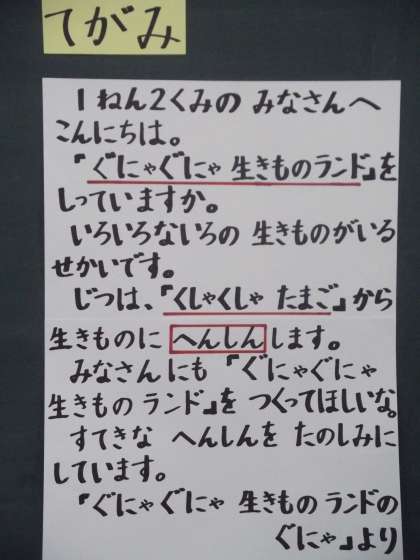 てがみ
1ねん2くみの みなさんへ
こんにちは。
「ぐにゃぐにゃ 生きものランド」を
しっていますか。
いろいろないろの 生きものがいる
せかいです。
じつは、「くしゃくしゃ たまご」から
生きものに へんしん します。
みなさんにも 「ぐにゃぐにゃ
生きもの ランド」を つくってほしいな。
すてきな へんしんを たのしみに
しています。
「ぐにゃぐにゃ 生きもの ランドの
ぐにゃ」より